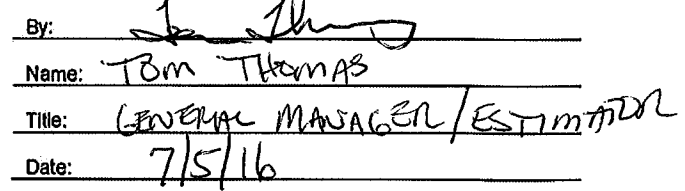 By:
Name: TOM THOMAS
Title: GENERAL MANAGER/ESTIMATOR
Date: 7/5/16